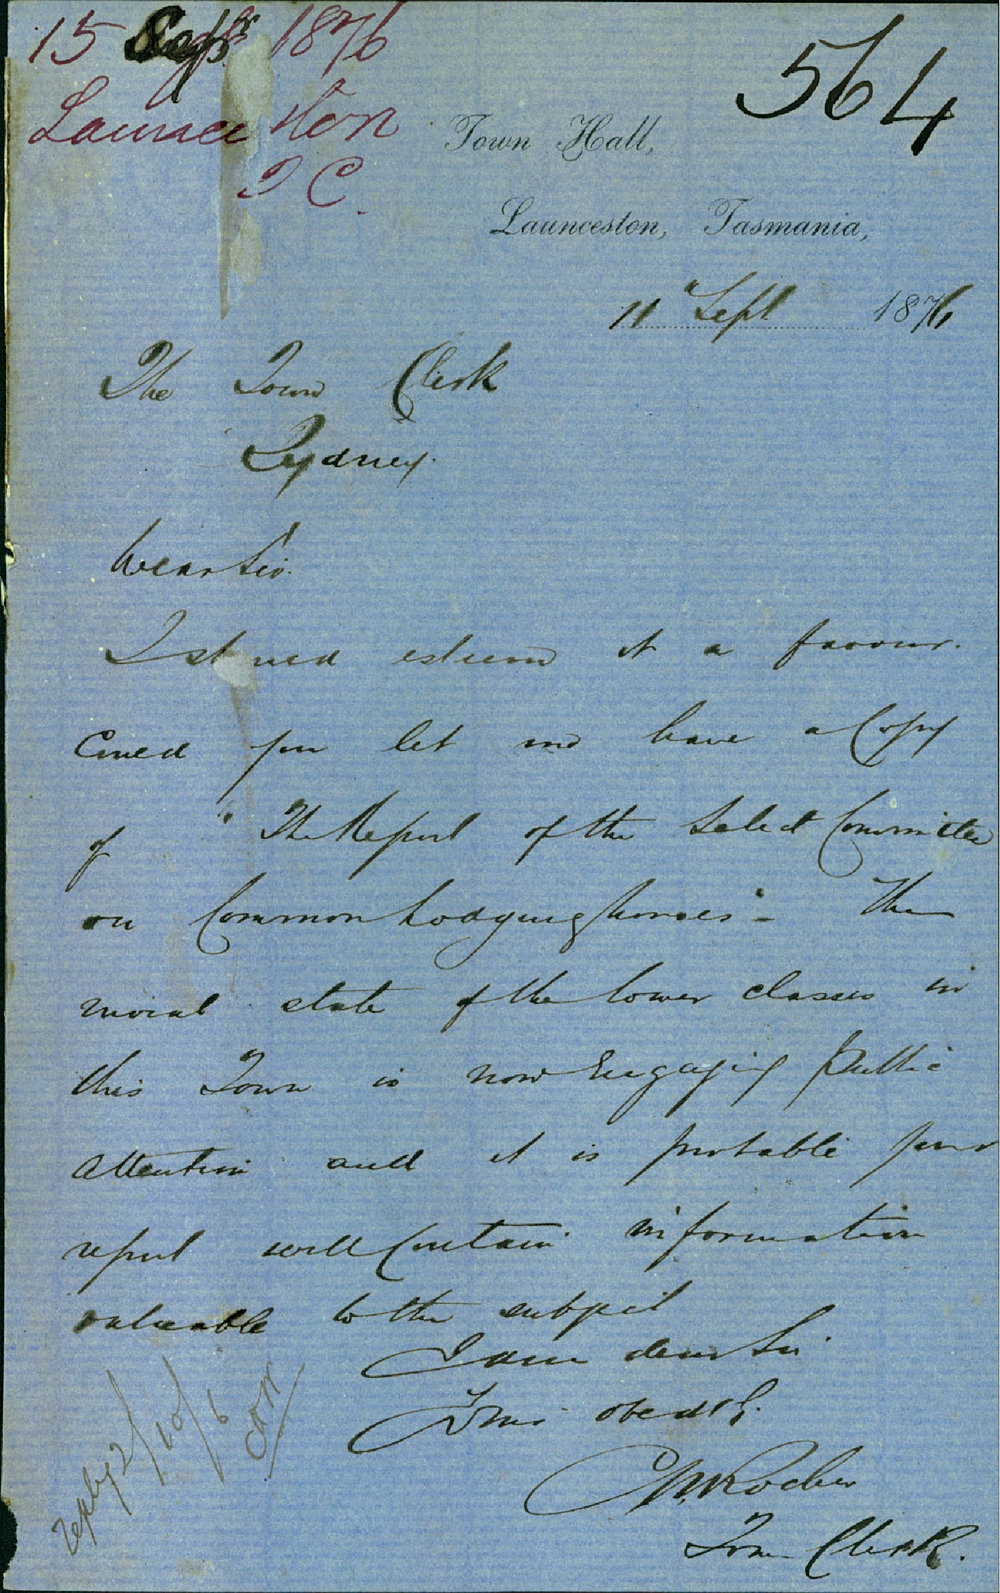 15 Sept 1876
564
Launceston
T C.
Town Hall,
Launceston, Tasmania,
11" Sept 1876
The Town Clerk
Sydney.
Dear Sir.
I should esteem it a favour.
Could you let me have a Copy
of "The Report of the Select Committee
on Common Lodging houses" - The
moral state of the lower classes in
this Town is now Engaging Public
attention and it is probable your
report will Contain information
valuable to the subject
I am dear Sir
Yours obedtly.
Rocher
Town Clerk.
reply 2/10/6